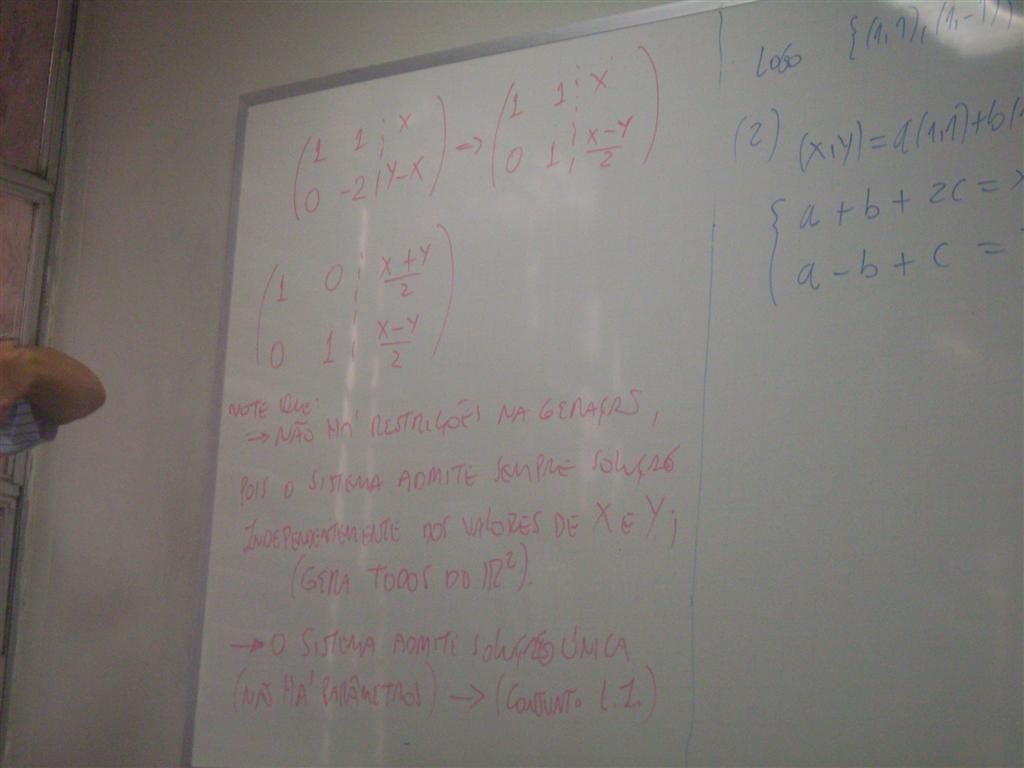 (1 1 ¦ X
0 -2 ¦ Y-X) → (1 1 ¦ X
0 1 ¦ X-Y/2)
(1 0 ¦ X+Y/2
0 1 ¦ X-Y/2)
NOTE QUE:
→ NÃO HÁ RESTRIÇÕES NA GERAÇÃO,
POIS O SISTEMA ADMITE SEMPRE SOLUÇÃO
INDEPENDENTEMENTE DOS VALORES DE X E Y;
(GERA TODOS DO ℝ²).
→ O SISTEMA ADMITE SOLUÇÃO ÚNICA
(NÃO HÁ PARÂMETROS) → (CONJUNTO L.I.)
LOGO {(1,1),(1,-1)
(2) (X,Y)=a(1,1)+b(
{a + b + 2c =
a - b + c =